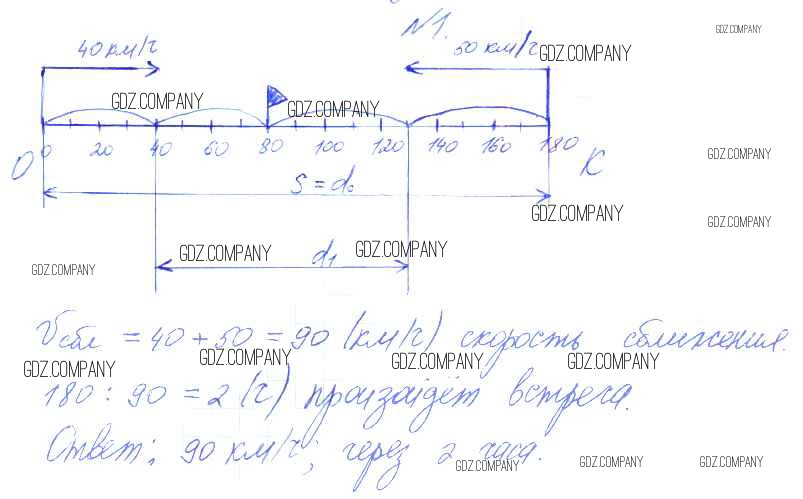 №1.
GDZ.COMPANY
40 км/ч 50 км/ч
GDZ.COMPANY
GDZ.COMPANY GDZ.COMPANY
0 20 40 60 80 100 120 140 160 180
O K
GDZ.COMPANY
S = d₀
GDZ.COMPANY
GDZ.COMPANY
d₁
GDZ.COMPANY GDZ.COMPANY
GDZ.COMPANY
Vсбл = 40 + 50 = 90 (км/ч) скорость сближения.
GDZ.COMPANY GDZ.COMPANY GDZ.COMPANY GDZ.COMPANY
180 : 90 = 2 (ч) произойдёт встреча.
Ответ: 90 км/ч; через 2 часа.
GDZ.COMPANY GDZ.COMPANY GDZ.COMPANY